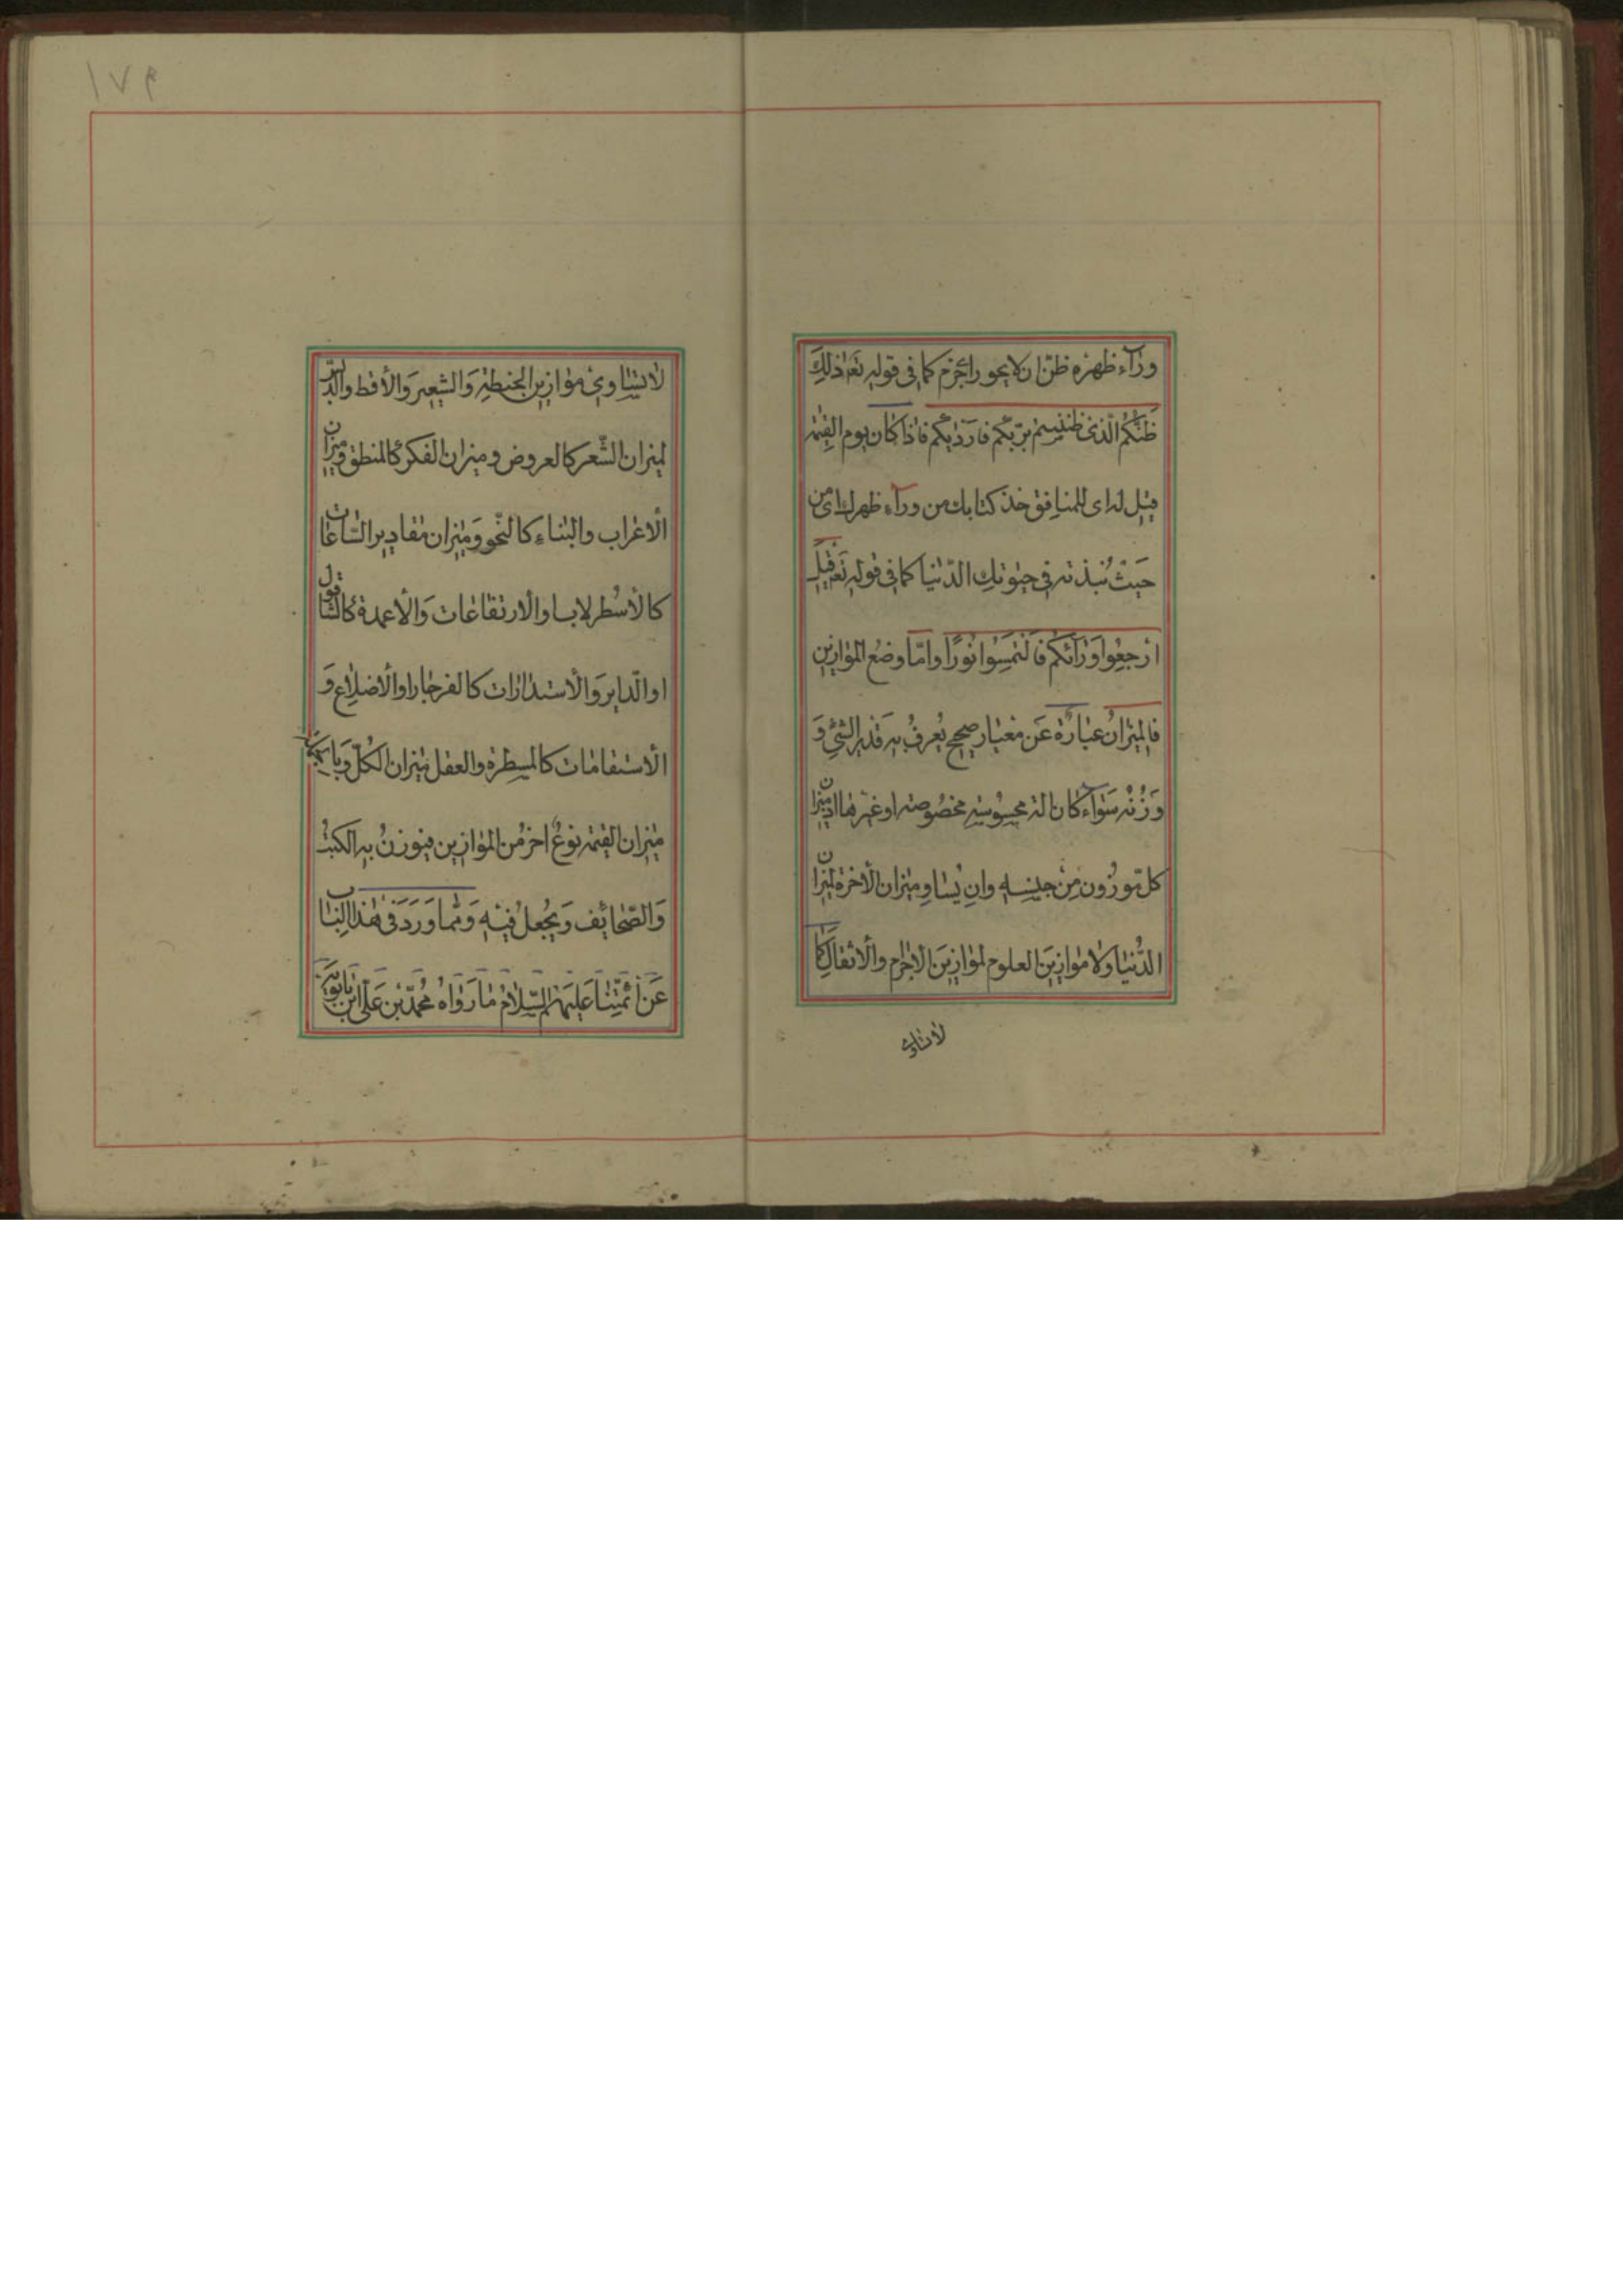 ورآء ظهره ظنّ ان لا يحور اى جزم كما فى قوله تعا ذلك
ظنّكم الّذى ظننتم بربّكم فاَرديكم فاذا كان يوم القيمة
قيل له اى للمنافق خذ كتابك من ورآء ظهرك اى من
حيث نبذته فى حيوتك الدّنيا كما فى قوله تعا قيل
ارجعوا ورآئكم فالتمسوا نورًا وامّا وضع الموازين
فالميزان عبارة عن معيار صحيح يعرف به قدر الشئ و
وزنه سوآء كان له محسوسة مخصوصة او غيرها اذ ميزان
كل موزون من جنسه وان يساو ميزان الأخرة لميزان
الدّنيا ولا موازين العلوم لموازين الاجرام والأثقال كما
لا يتساوى
١٧٩
لا يتساوى موازين الحنطة والشعير والأقط والدبس
لميزان الشّعر كالعروض وميزان الفكر كالمنطق وميزان
الأعراب والبناء كالنّحو وميزان مقادير السّاعات
كالأسطرلاب والارتقاعات والأعمدة كالشاقول
او الّداير والأستدارات كالفرجار او الأضلاع و
الأستقامات كالمسطرة والعقل ميزان الكلّ وبالجملة
ميزان القيمة نوع اخر من الموازين فيوزن به الكتب
والصّحائف ويجعل فيه وممّا ورد فى هذا الباب
عن أئمّتنا عليهم السّلام ما رواه محمّد بن علىّ ابن بابويه